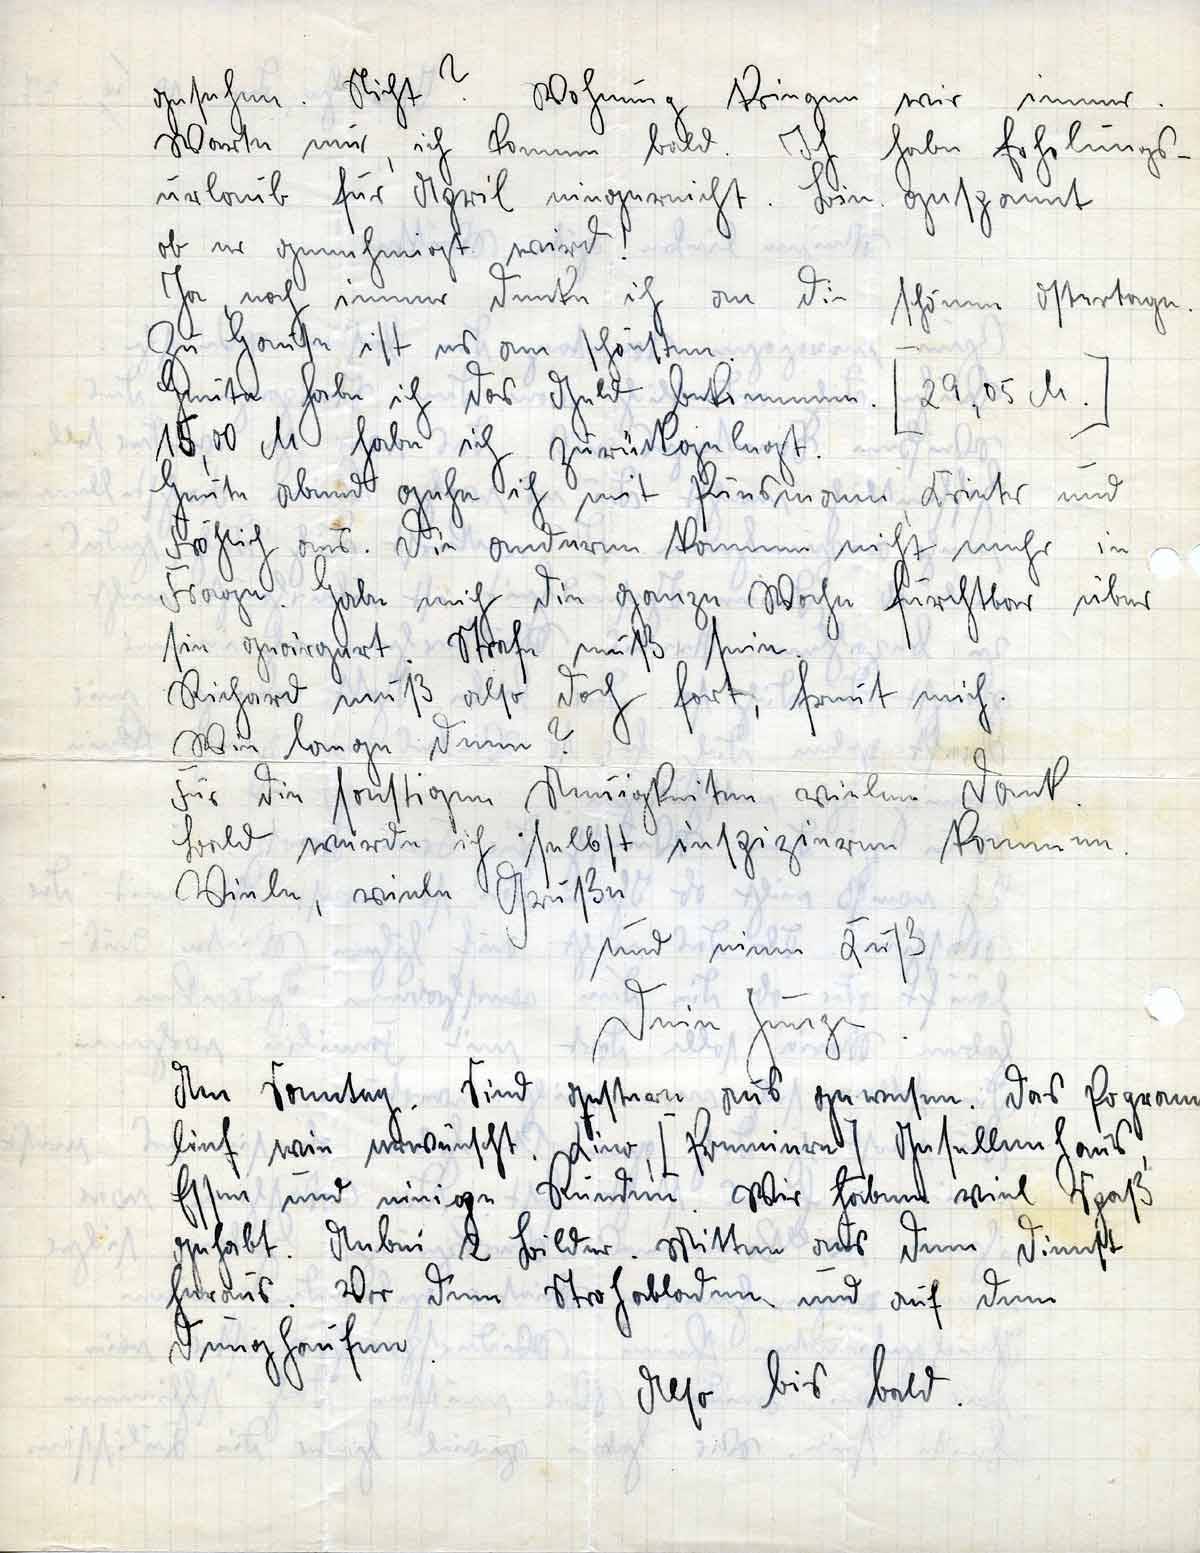 gesehen. Nicht? Wohnung kriegen wir immer.
Warte nur, ich komme bald. Ich habe Erholungs-
urlaub für April eingereicht. Bin gespannt
ob er genehmigt wird!
Ja, noch immer denke ich an die schönen Ostertage.
Zu Hause ist es am schönsten.
Heute habe ich das Geld bekommen. [29,05 M.]
15,00 M habe ich zurückgelegt.
Heute abend gehe ich mit und
Fröhlich aus. Die anderen kommen nicht mehr in
Frage. Habe mich die ganze Woche furchtbar über
sie geärgert. Strafe muß sein.
Richard muß also doch fort, freut mich.
Wie lange denn?
Für die sonstigen Neuigkeiten vielen Dank.
Bald werde ich selbst inspizieren kommen.
Viele, viele Grüße
und einen Kuß
Dein
Am Sonntag. Sind gestern aus gewesen. Das Pogram
lief wie erwünscht. Kino, [Premiere] Gesellenhaus,
Essen und einige Runden. Wir haben viel Spaß
gehabt. Anbei 2 Bilder. Mitten aus dem Dienst
heraus. Vor dem Strohabladen und auf dem
Dunghaufen.
Also bis bald.